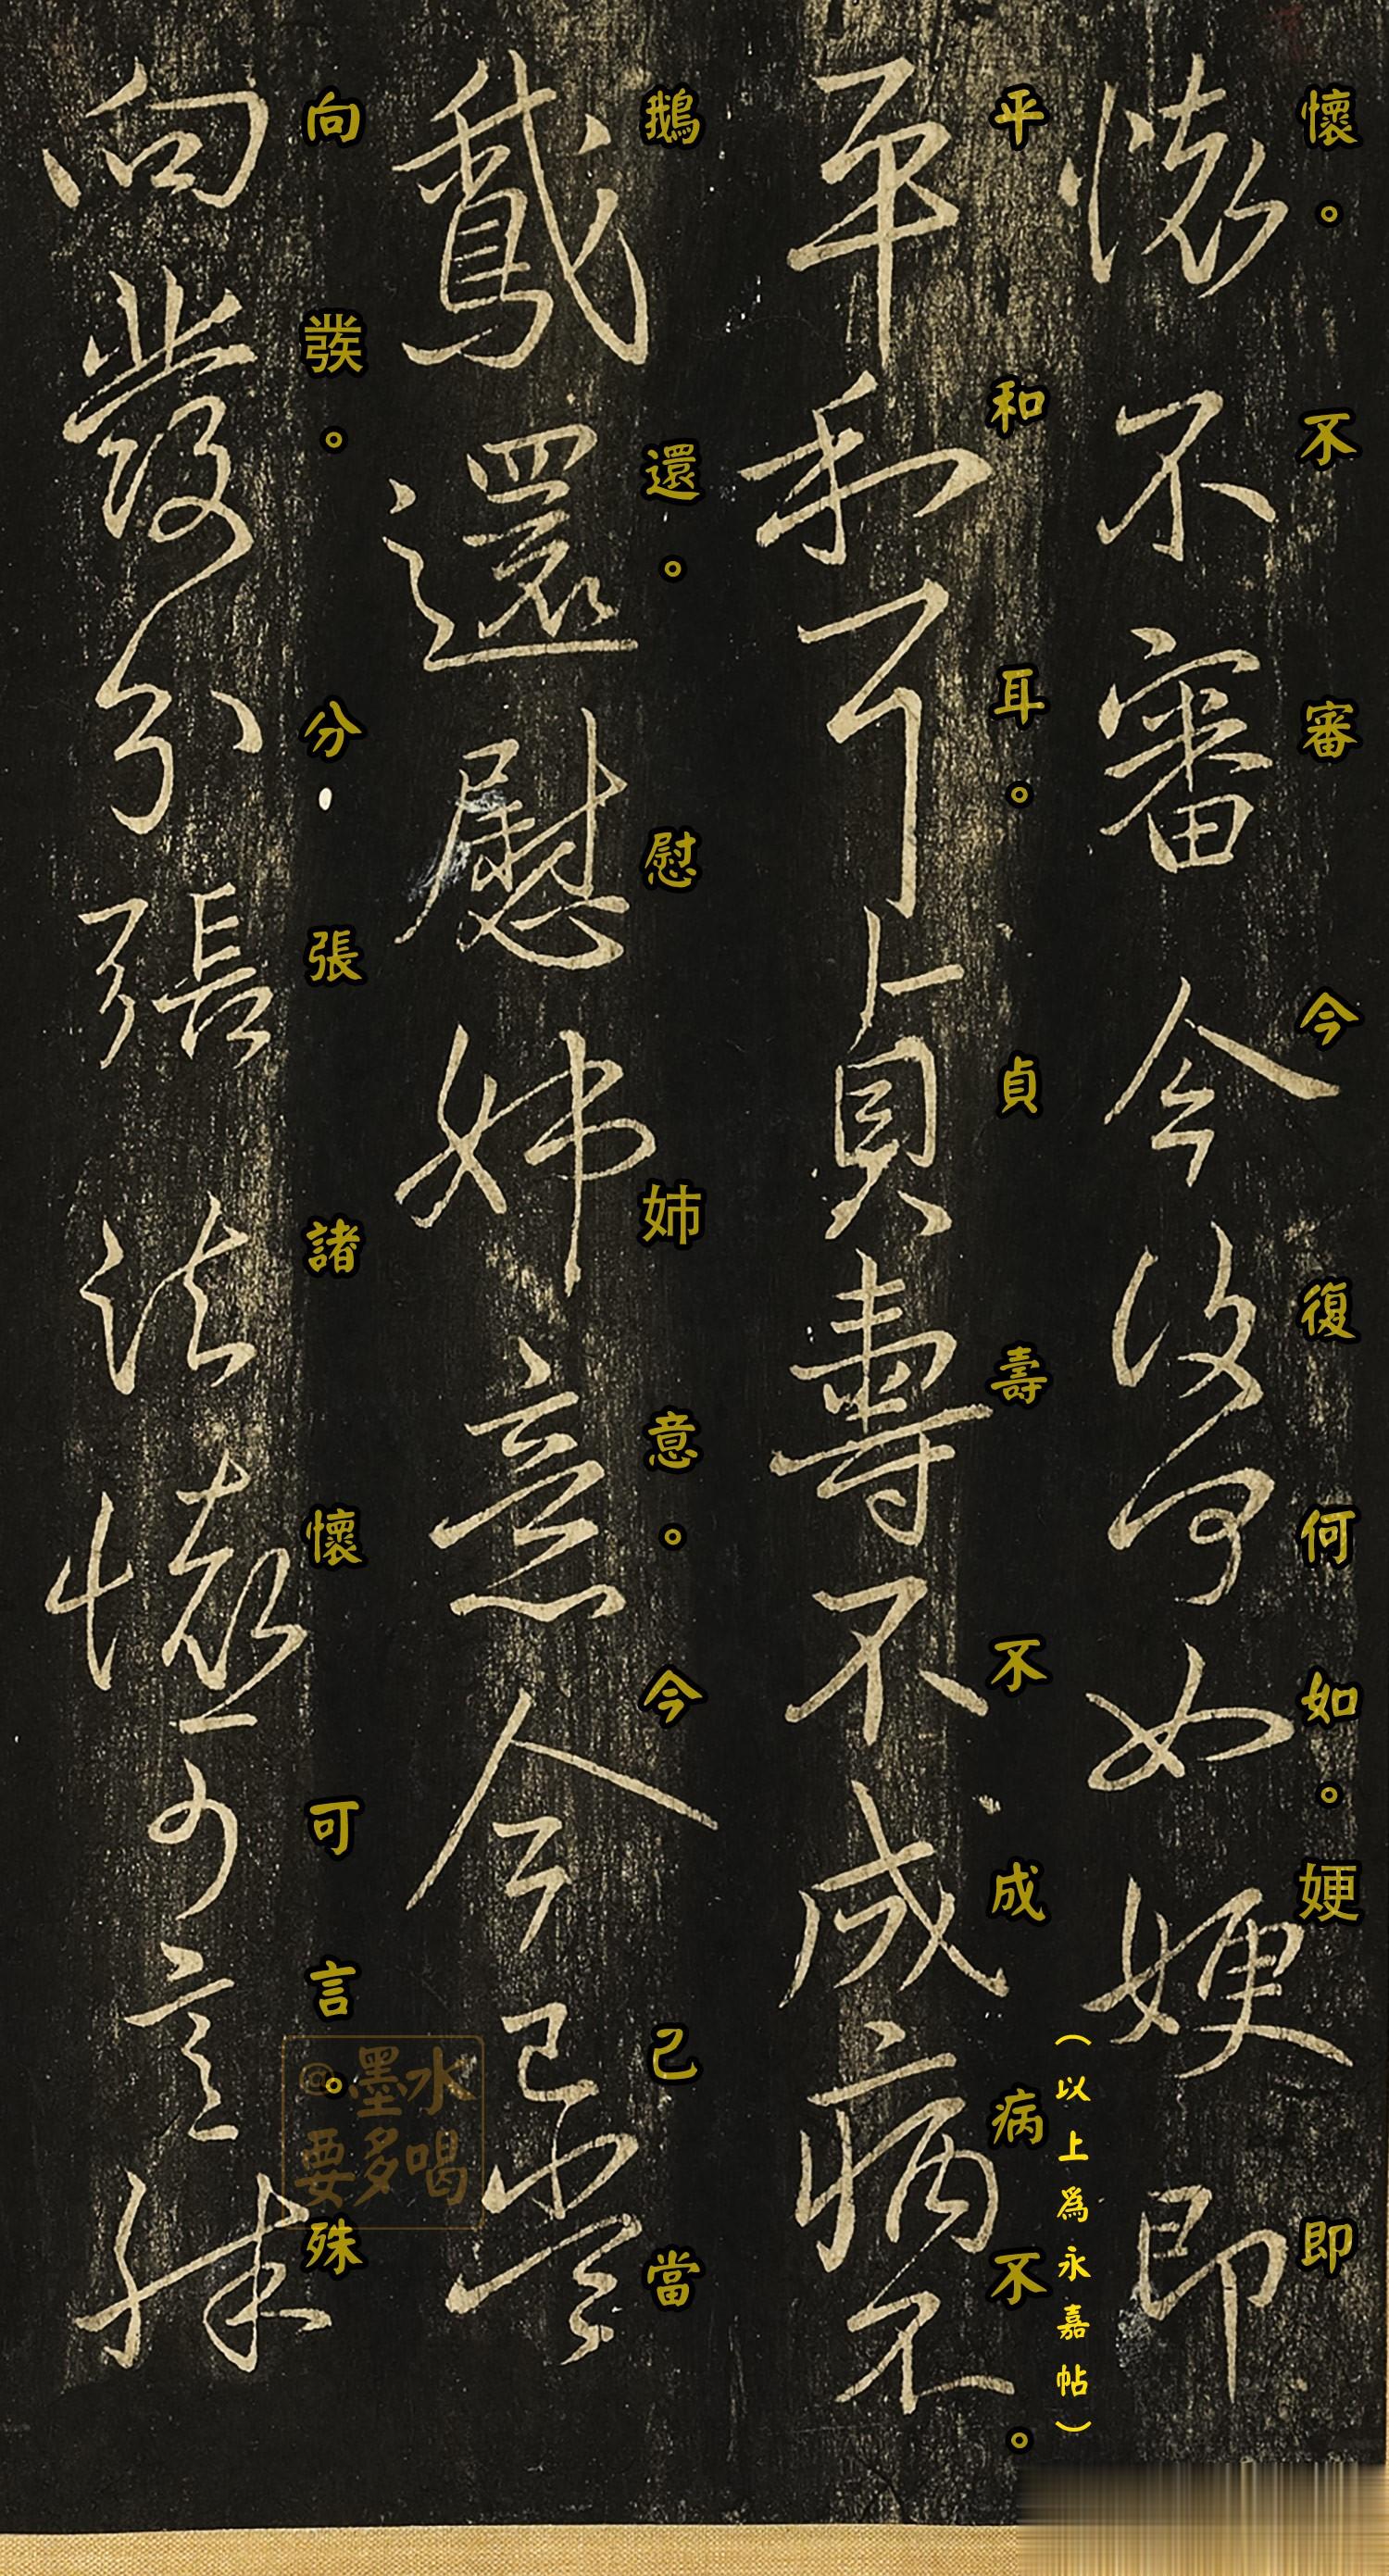 懷。不審今復何如。㛐即
懷不審今復何如㛐即
（以上爲永嘉帖）
平和耳。貞壽不成病不。
平和耳貞壽不成病不
鵝還。慰姉意。今己當
鵝還慰姉意今己當
向彂。分張諸懷可言。殊
向發分張諸懷可言殊
@墨水
要多喝